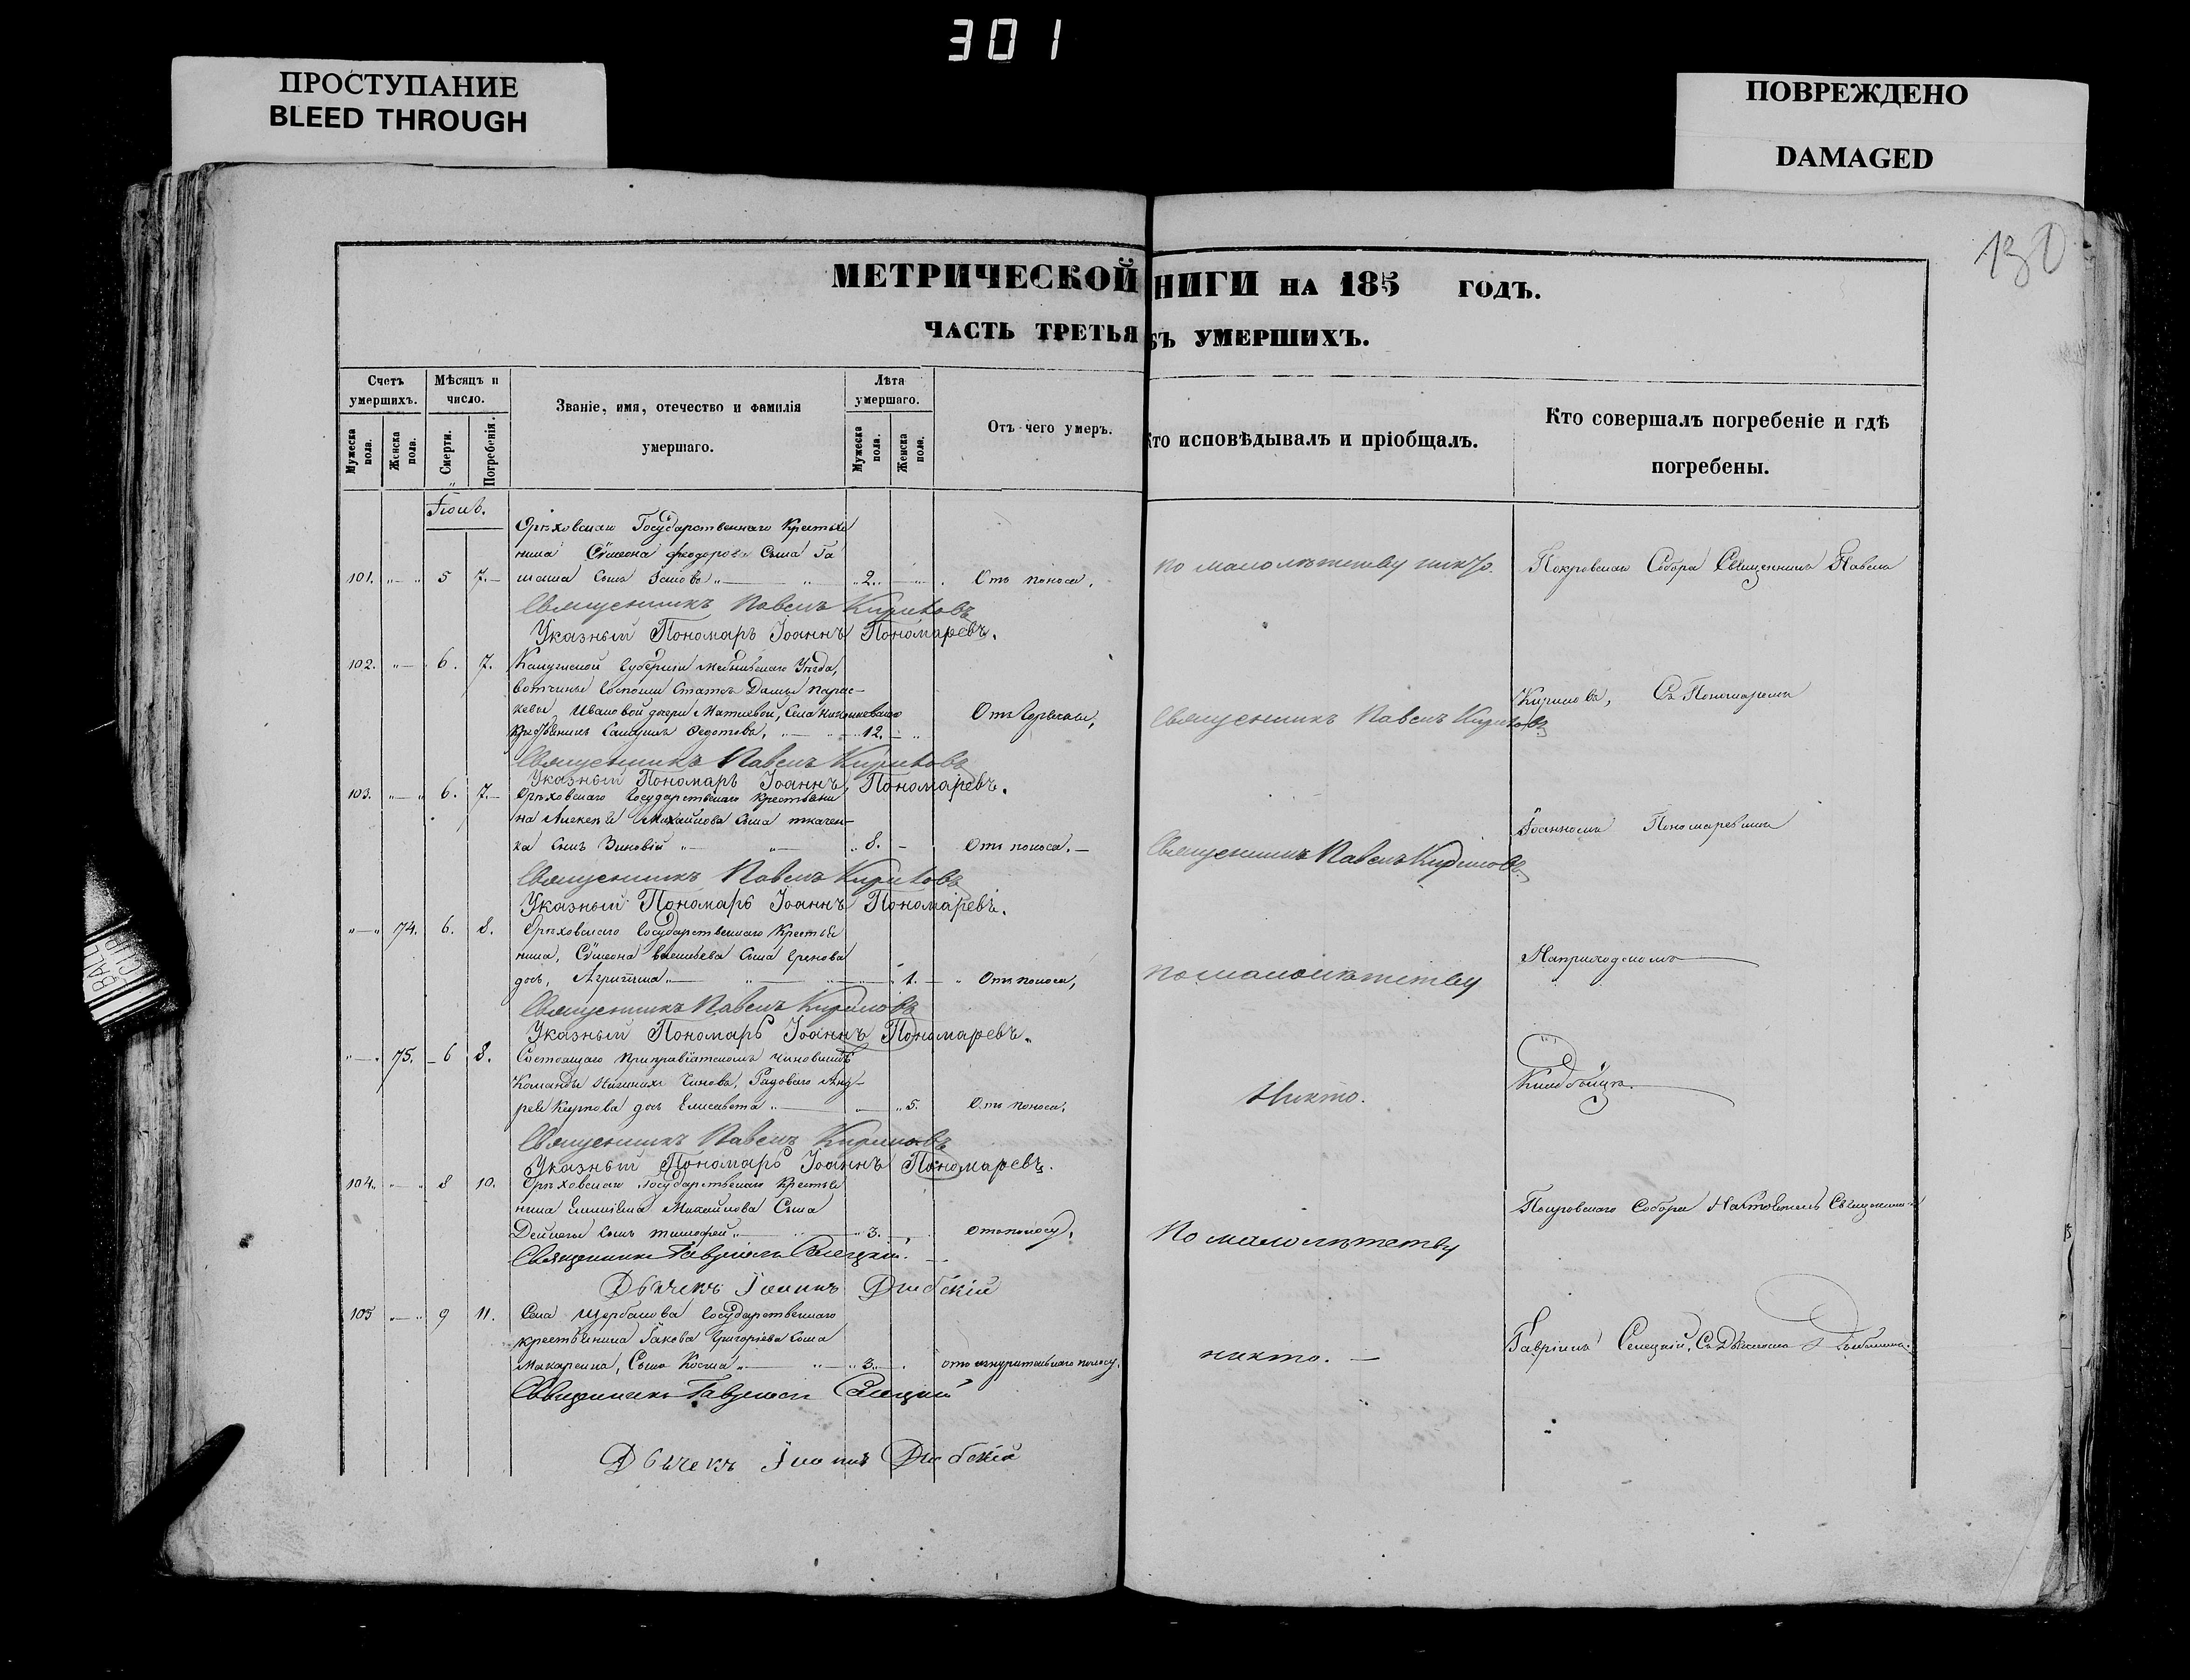 301
ПРОСТУПАНИЕ
BLEED THROUGH
ПОВРЕЖДЕНО
DAMAGED
130
МЕТРИЧЕСКОЙ НИГИ НА 185 ГОДЪ.
ЧАСТЬ ТРЕТЬЯ БЪ УМЕРШИХЪ.
Счетъ умершихъ.
Мѣсяцъ и число.
Званіе, имя, отечество и фамилія умершаго.
Лѣта умершаго.
Отъ чего умеръ.
Кто исповѣдывалъ и пріобщалъ.
Кто совершалъ погребеніе и гдѣ погребены.
Мужеска пола.
Женска пола.
Смерти.
Погребенія.
Мужеска пола.
Женска пола.
Орѣховскаго Государственнаго Крестья
нина Сѵмеона Феодорова Сына
101. 5 7. сынъ 2. Отъ поноса. По малолѣтству никто. Покровскаго Собора Священникъ Павелъ
Священникъ Павелъ Кириловъ
Указный Пономарь Іоаннъ Пономаревъ.
102. 6. 7. Калужской Губерніи Уѣзда,
вотчины Госпожи Статсъ Дамы Парас-
кевы Ивановой дочери Села
Федотовъ, 12. Священникъ Павелъ Кириловъ
Кириловъ, Съ Пономаремъ
Священникъ Павелъ Кириловъ
Указный Пономарь Іоаннъ Пономаревъ.
103. 6. 7. Орѣховскаго Государственнаго Крестьяни
на Алексѣя Михайлова Сына Ткачен-
ка Сынъ Зиновій 8. Отъ поноса. Священникъ Павелъ Кириловъ
Іоанномъ Пономаревымъ
Священникъ Павелъ Кириловъ
Указный Пономарь Іоаннъ Пономаревъ.
74. 6. 8. Орѣховскаго Государственнаго Крестья
нина, Сѵмеона Сына
дочь, 1. Отъ поноса, По малолѣтству
На приходскомъ
Священникъ Павелъ Кириловъ
Указный Пономарь Іоаннъ Пономаревъ.
75. 6 8. Состоящаго
Команды Чиновъ, Рядоваго Анд-
рея дочь Елисавета 5. Отъ поноса. Никто.
Кладбищѣ.
Священникъ Павелъ Кириловъ
Указный Пономарь Іоаннъ Пономаревъ.
104. 8 10. Орѣховскаго Государственнаго Крестья
нина Михайлова Сына
сынъ Тимофей 3. Отъ поносу, По малолѣтству
Покровскаго Собора Настоятель Священникъ
Священникъ Гавріилъ Селецкій.
Дьячекъ Іоаннъ
105 9 11. Села Щербакова Государственнаго
крестьянина Іакова Григоріева Сына
Сынъ Косма 3. отъ изнурительнаго поносу. никто.
Гавріилъ Селецкій, Съ Дьячкомъ
Священникъ Гавріилъ Селецкій
Дьячекъ Іоаннъ